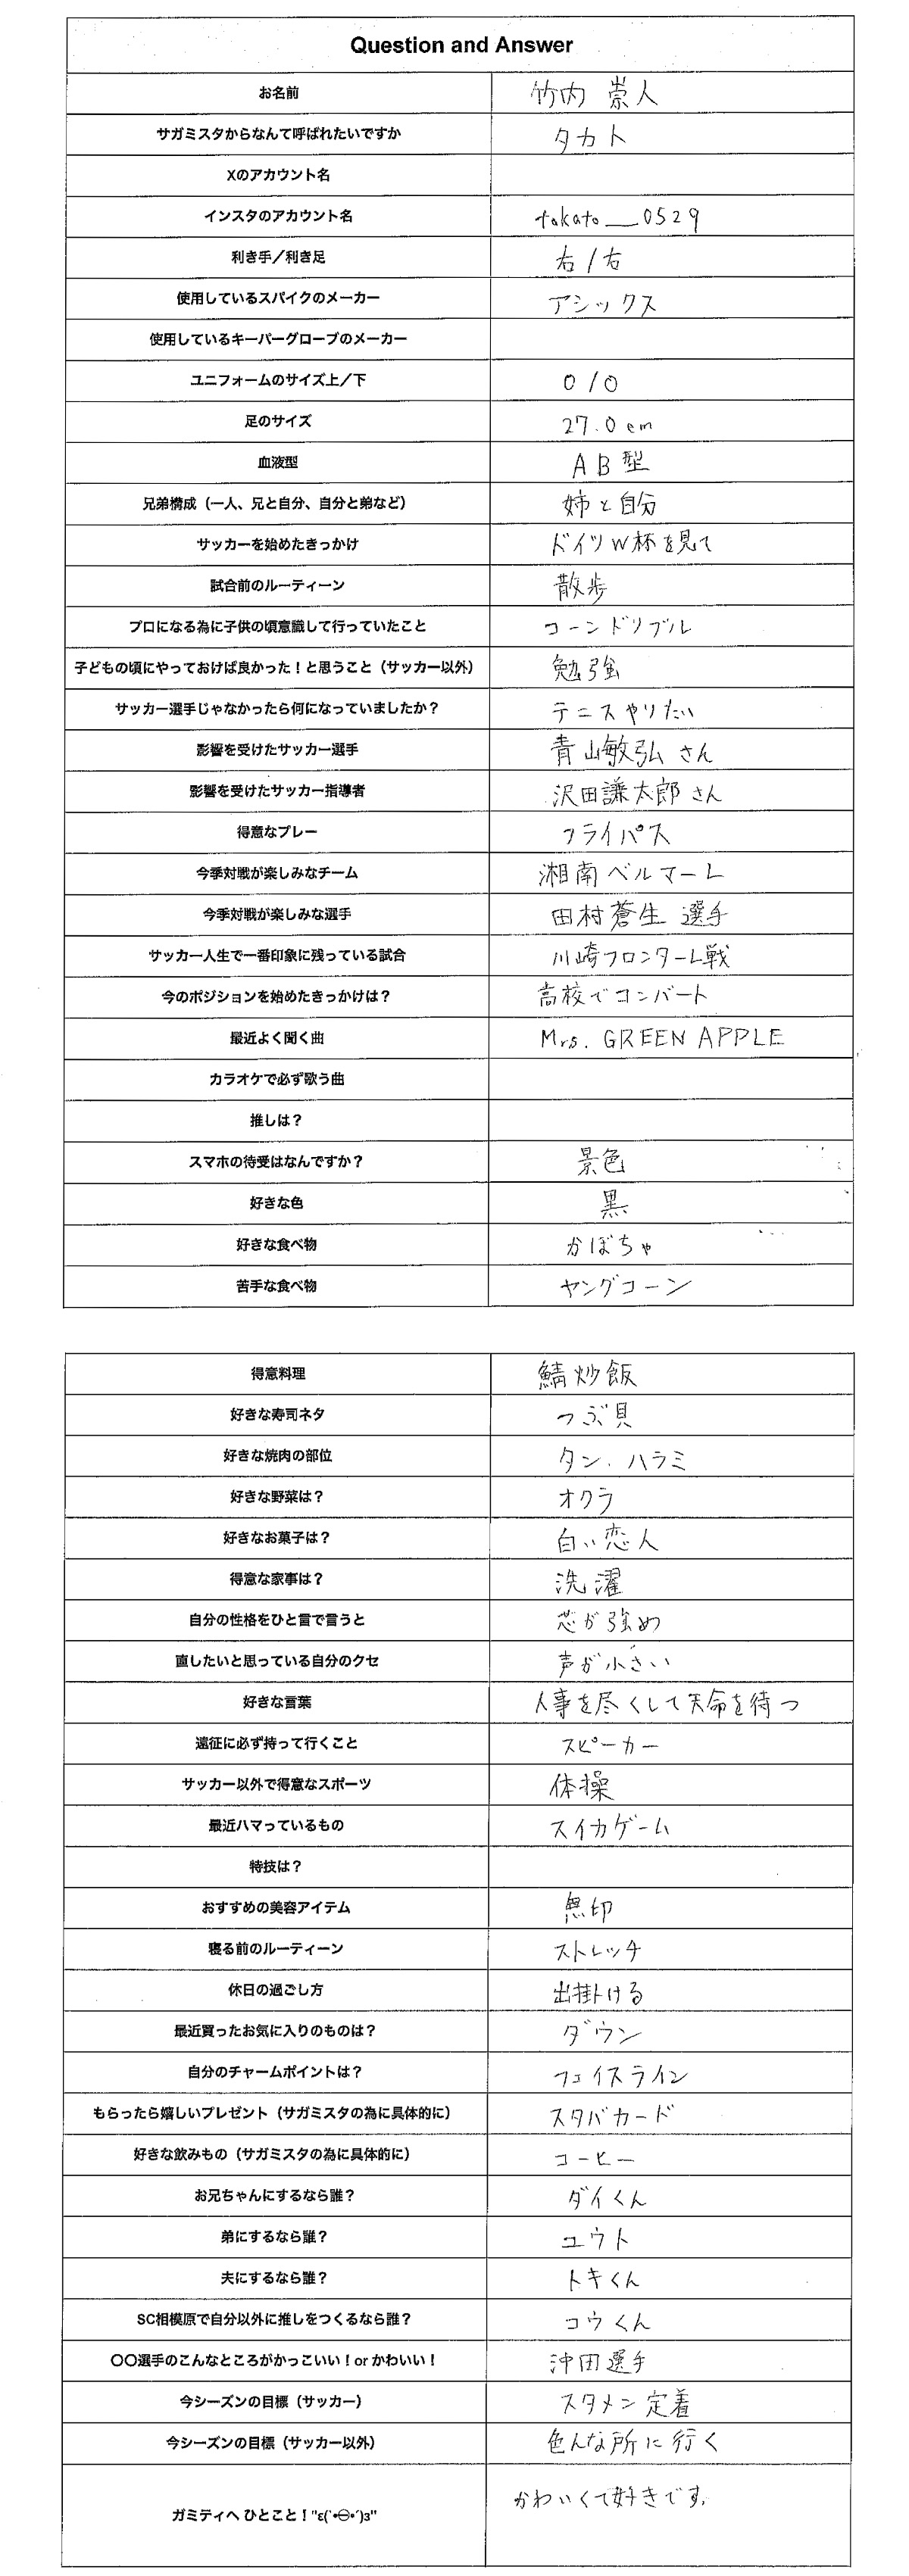 Question and Answer
お名前 竹内 崇人
サガミスタからなんて呼ばれたいですか タカト
Xのアカウント名
インスタのアカウント名 takato__0529
利き手／利き足 右/右
使用しているスパイクのメーカー アシックス
使用しているキーパーグローブのメーカー
ユニフォームのサイズ上／下 O/O
足のサイズ 27.0cm
血液型 AB型
兄弟構成（一人、兄と自分、自分と弟など） 姉と自分
サッカーを始めたきっかけ ドイツW杯を見て
試合前のルーティーン 散歩
プロになる為に子供の頃意識して行っていたこと コーンドリブル
子どもの頃にやっておけば良かった！と思うこと（サッカー以外） 勉強
サッカー選手じゃなかったら何になっていましたか？ テニスやりたい
影響を受けたサッカー選手 青山敏弘さん
影響を受けたサッカー指導者 沢田謙太郎さん
得意なプレー フライパス
今季対戦が楽しみなチーム 湘南ベルマーレ
今季対戦が楽しみな選手 田村蒼生 選手
サッカー人生で一番印象に残っている試合 川崎フロンターレ戦
今のポジションを始めたきっかけは？ 高校でコンバート
最近よく聞く曲 Mrs. GREEN APPLE
カラオケで必ず歌う曲
推しは？
スマホの待受はなんですか？ 景色
好きな色 黒
好きな食べ物 かぼちゃ
苦手な食べ物 ヤングコーン
得意料理 鯖炒飯
好きな寿司ネタ つぶ貝
好きな焼肉の部位 タン．ハラミ
好きな野菜は？ オクラ
好きなお菓子は？ 白い恋人
得意な家事は？ 洗濯
自分の性格をひと言で言うと 芯が強め
直したいと思っている自分のクセ 声が小さい
好きな言葉 人事を尽くして天命を待つ
遠征に必ず持って行くこと スピーカー
サッカー以外で得意なスポーツ 体操
最近ハマっているもの スイカゲーム
特技は？
おすすめの美容アイテム 無印
寝る前のルーティーン ストレッチ
休日の過ごし方 出掛ける
最近買ったお気に入りのものは？ ダウン
自分のチャームポイントは？ フェイスライン
もらったら嬉しいプレゼント（サガミスタの為に具体的に） スタバカード
好きな飲みもの（サガミスタの為に具体的に） コーヒー
お兄ちゃんにするなら誰？ ダイくん
弟にするなら誰？ ユウト
夫にするなら誰？ トキくん
SC相模原で自分以外に推しをつくるなら誰？ コウくん
〇〇選手のこんなところがかっこいい！or かわいい！ 沖田選手
今シーズンの目標（サッカー） スタメン定着
今シーズンの目標（サッカー以外） 色んな所に行く
ガミティへ ひとこと！"ε(´•Θ•´)з" かわいくて好きです。